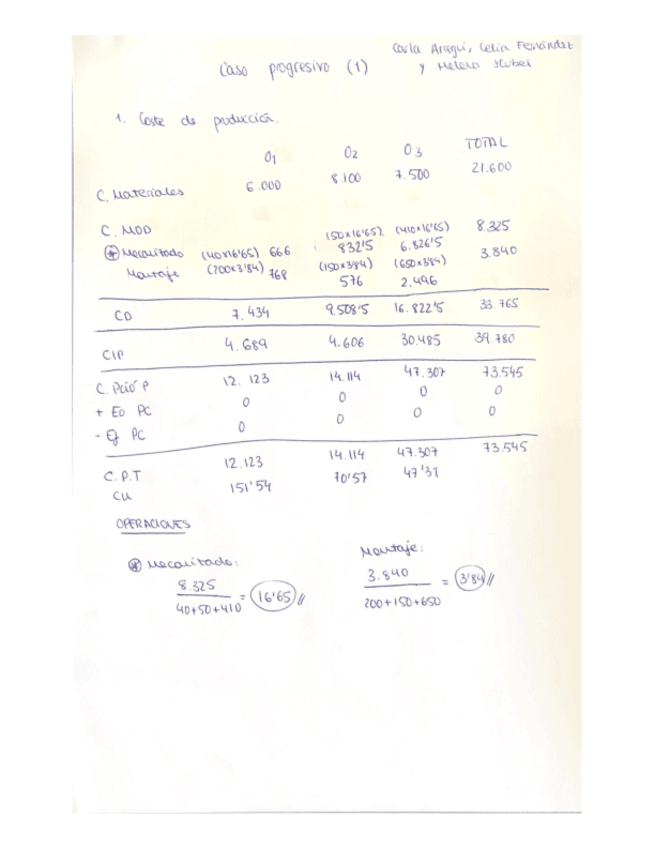 Carla Arregi, Celia Fernández
Caso progresivo (1) y Helena
1. Coste de producción.
O1 O2 O3 TOTAL
C. Materiales 6.000 8.100 7.500 21.600
C. MOD
* Mecanizado (40x16'65) 666 (50x16'65) 832'5 (410x16'65) 6.826'5 8.325
Montaje (200x3'84) 768 (150x3'84) 576 (650x3'84) 2.496 3.840
CD 7.434 9.508'5 16.822'5 33.765
CIP 4.689 4.606 30.485 39.780
C. Pció P 12.123 14.114 47.307 73.545
+ Eo PC 0 0 0 0
- Ef PC 0 0 0 0
C.P.T 12.123 14.114 47.307 73.545
CU 151'54 70'57 47'31
OPERACIONES
* Mecanizado: Montaje:
8.325 / 40+50+410 = 16'65 //
3.840 / 200+150+650 = 3'84 //